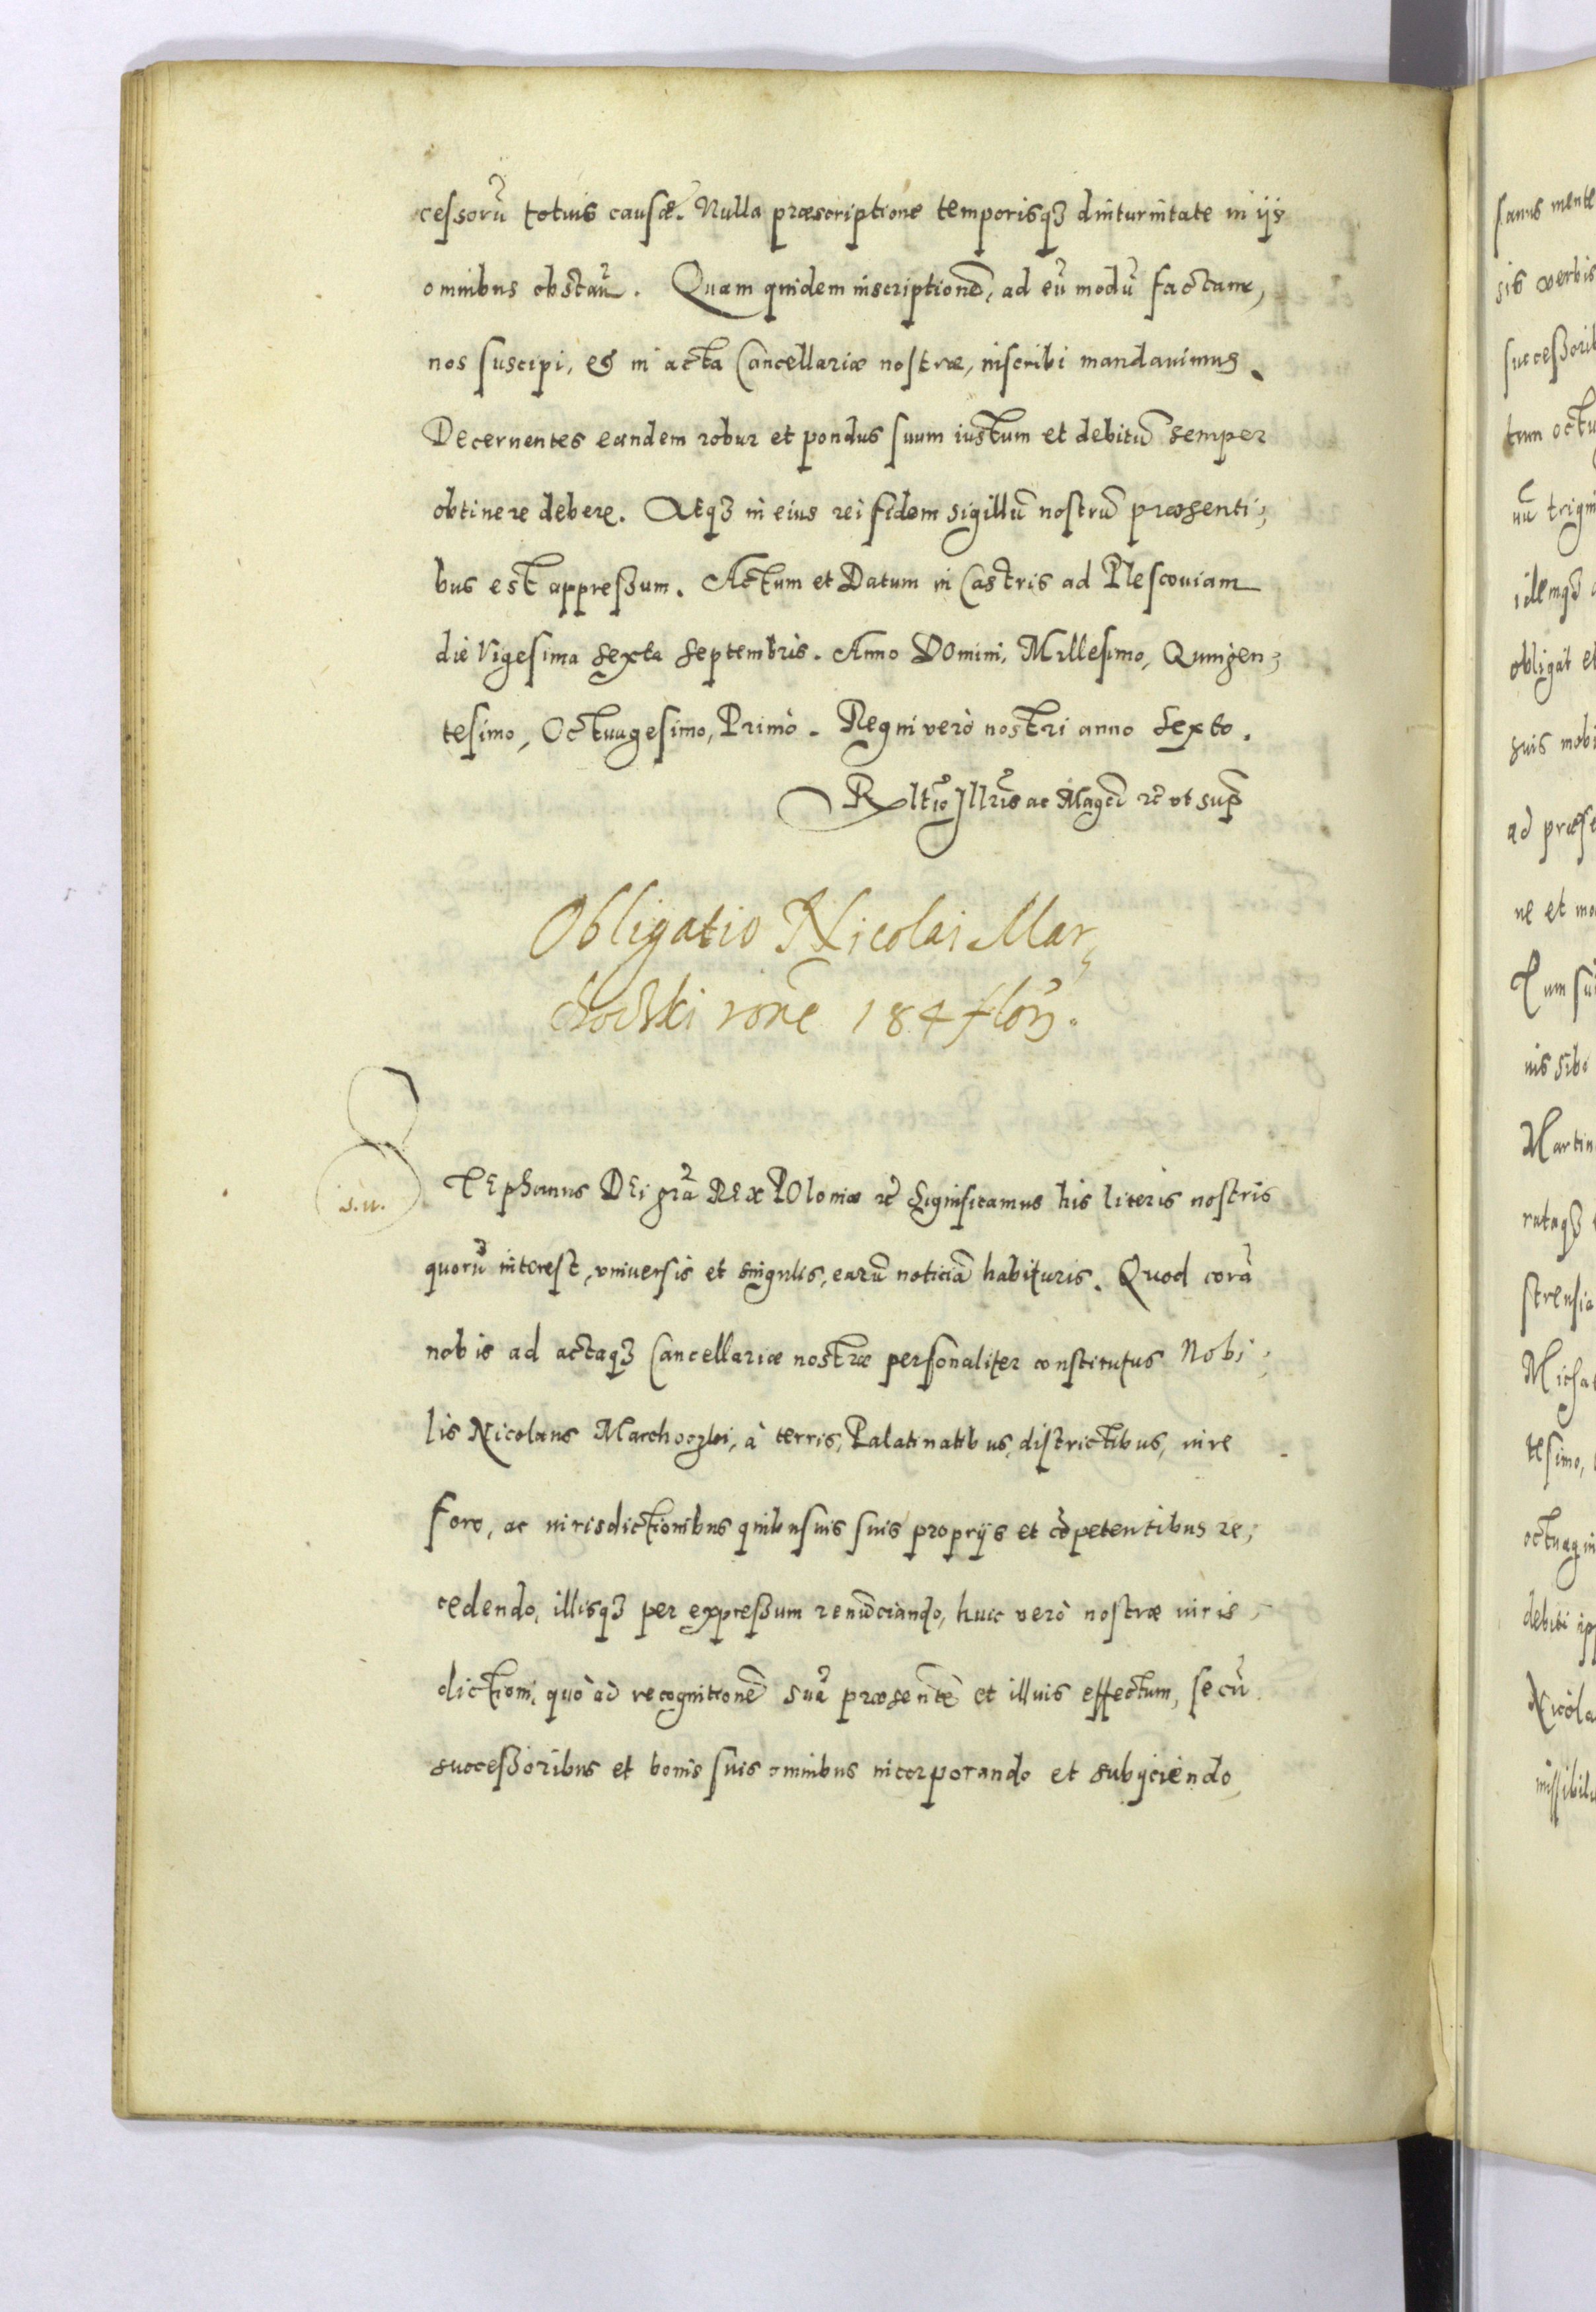 cessorũ totius causæ. Nulla præscriptione temporisqꝫ diuturnitate in ijs
omnibus obstañ. Quam quidem inscriptionẽ, ad eũ modũ factam,
nos suscipi, et in acta Cancellariæ nostræ, inscribi mandauimus.
Decernentes eandem robur et pondus suum iustum et debitũ semper
obtinere debere. Atqꝫ in eius rei fidem sigillũ nostrũ præsenti,
bus est appreßum. Actum et Datum in Castris ad Plescouiam
die Vigesima sexta Septembris. Anno Domini, Millesimo, Quingen,
tesimo, Octuagesimo, Primò. Regni verò nostri anno sexto.
Rltio Illris ac Magci ꝛc̃ vt sup
Obligatio Nicolai Mar,
chocski rõne 184 flor̃.
S
s.u.
Tephanus DEi grã REx POloniæ ꝛc̃ Significamus his literis nostris
quorũ interest, vniuersis et singulis, earũ noticiã habituris. Quod corã
nobis ad actaqꝫ Cancellariæ nostræ personaliter constitutus Nobi,
lis Nicolaus Marchoczki, à terris, Palatinatibus, districtibus, iure
foro, ac iurisdictionibus quibusuis suis proprijs et cõpetentibus re,
cedendo, illisqꝫ per expreßum renũciando, huic verò nostræ iuris,
dictioni, quò ad recognitionẽ suã præsentẽ et illius effectum, se cũ
succeßoribus et bonis suis omnibus incorporando et subijciendo,